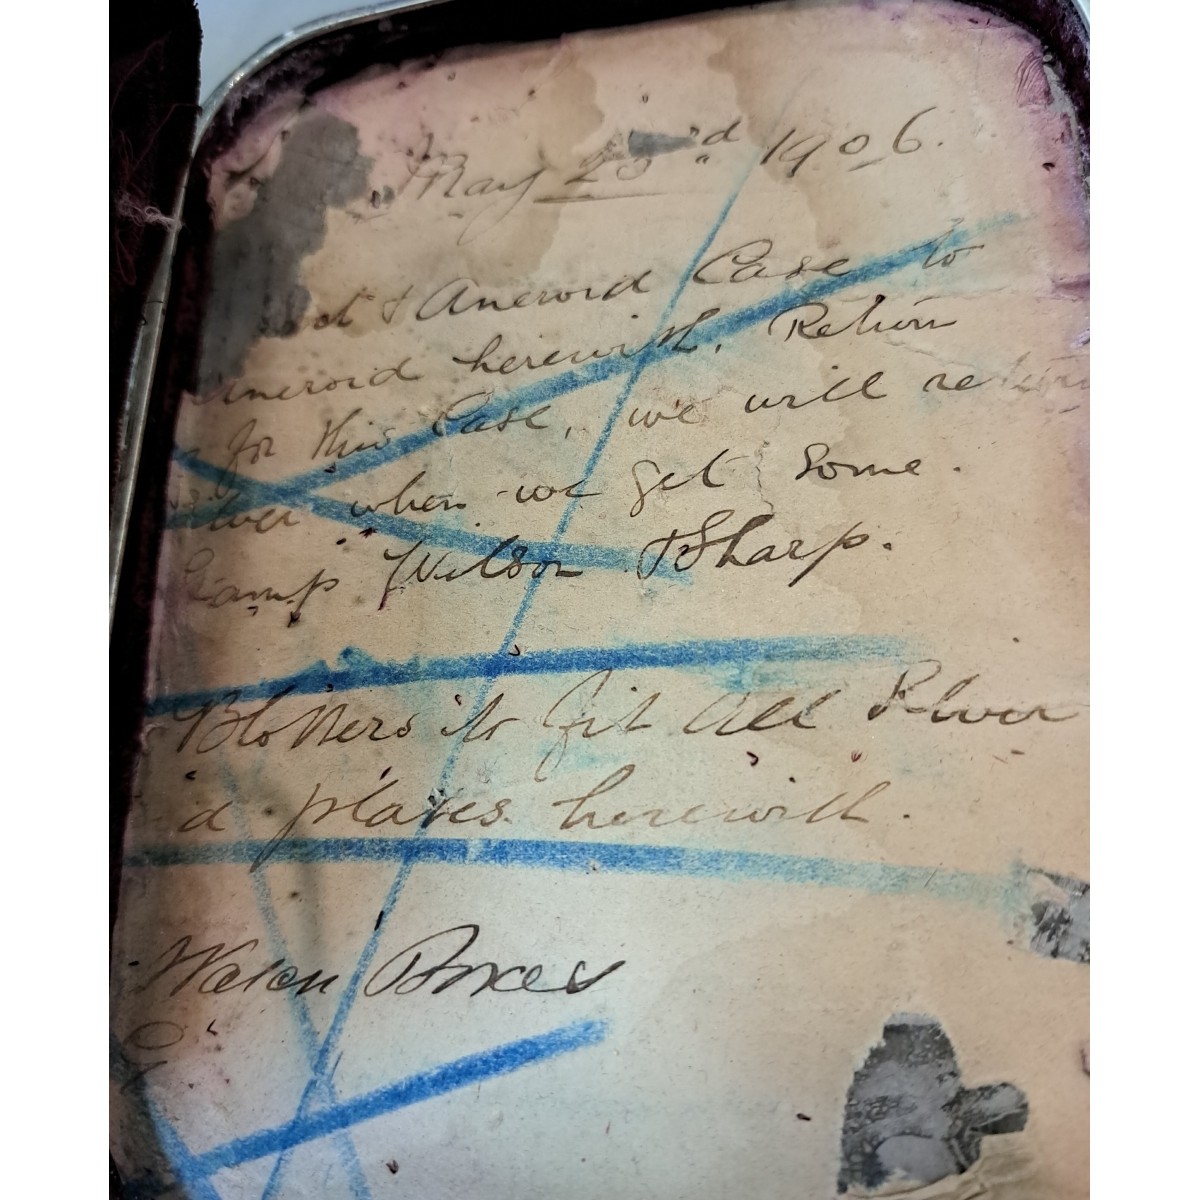 May 23rd 1906.
& Aneroid Case to
Aneroid herewith. Return
for this Case, we will return
when we get some.
Stamp Wilson & Sharp.
Blotters to fit all Silver
plates herewith.
Watch Boxes